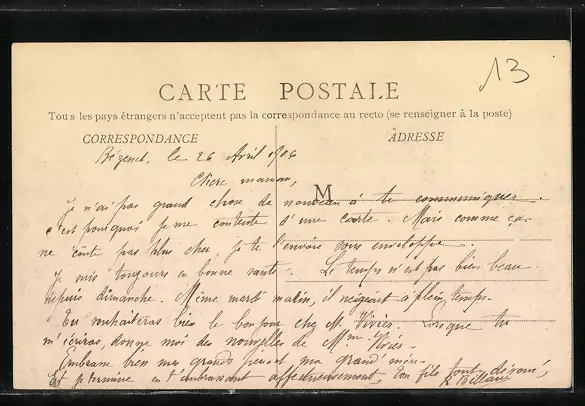 13
CARTE POSTALE
Tous les pays étrangers n'acceptent pas la correspondance au recto (se renseigner à la poste)
CORRESPONDANCE
ADRESSE
Bézenet, le 26 Avril 1906
Chère maman,
M
Je n'ai pas grand chose de nouveau à te communiquer.
c'est pourquoi je me contente d'une carte. Mais comme ça
ne coûte pas plus cher, je te l'envoie sous enveloppe.
Je suis toujours en bonne santé. Le temps n'est pas bien beau
depuis dimanche. Même mardi matin, il neigeait à plein temps.
Tu souhaiteras bien le bonjour chez M. Viviès. Lorsque tu
m'écriras, donne moi des nouvelles de Mme Viviès.
Embrasse bien mes grands et ma grand'mère.
Et je termine en t'embrassant affectueusement, ton fils tout dévoué,